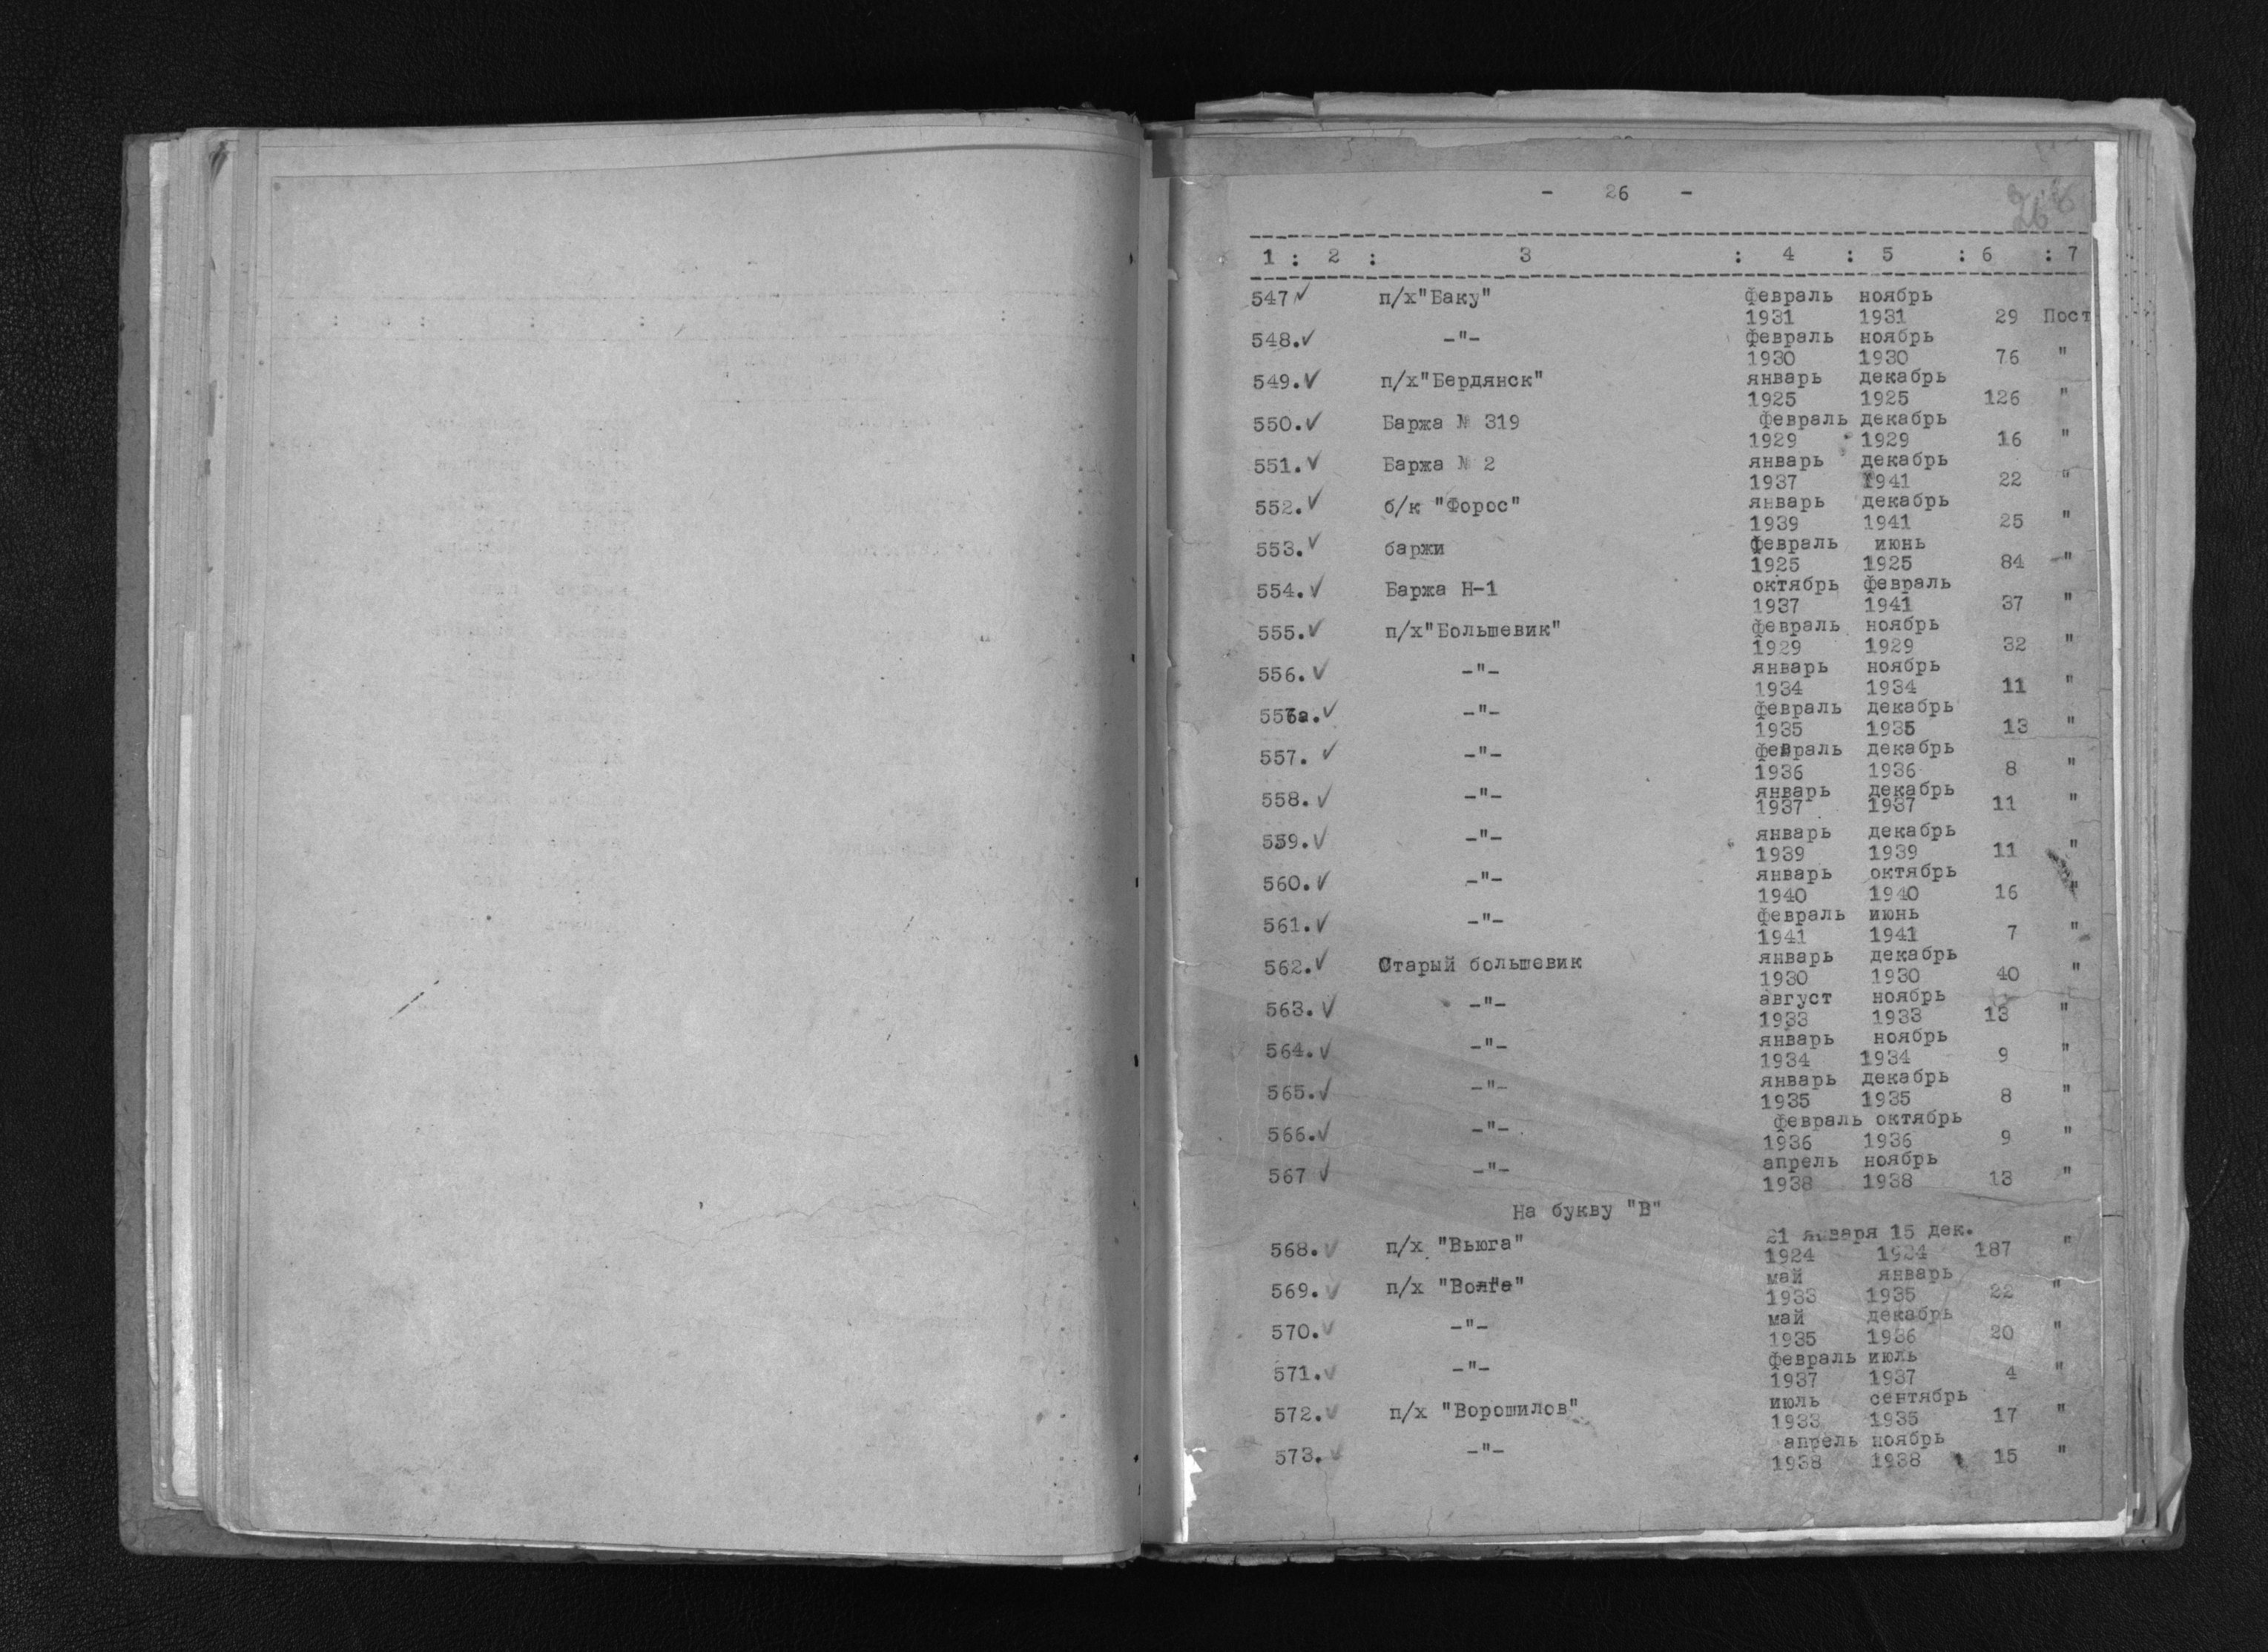 - 26 -
26
1 : 2 : 3 : 4 : 5 : 6 : 7
547 ✓ п/х"Баку" февраль ноябрь
1931 1931 29 Пост
548.✓ -"- февраль ноябрь
1930 1930 76 "
549.✓ п/х"Бердянск" январь декабрь
1925 1925 126 "
550.✓ Баржа № 319 февраль декабрь
1929 1929 16 "
551.✓ Баржа № 2 январь декабрь
1937 1941 22 "
552.✓ б/к "Форос" январь декабрь
1939 1941 25 "
553.✓ баржи февраль июнь
1925 1925 84 "
554.✓ Баржа Н-1 октябрь февраль
1937 1941 37 "
555.✓ п/х"Большевик" февраль ноябрь
1929 1929 32 "
556.✓ -"- январь ноябрь
1934 1934 11 "
556а.✓ -"- февраль декабрь
1935 1935 13 "
557. ✓ -"- февраль декабрь
1936 1936 8 "
558.✓ -"- январь декабрь
1937 1937 11 "
559.✓ -"- январь декабрь
1939 1939 11 "
560.✓ -"- январь октябрь
1940 1940 16 "
561.✓ -"- февраль июнь
1941 1941 7 "
562.✓ Старый большевик январь декабрь
1930 1930 40 "
563.✓ -"- август ноябрь
1933 1933 13 "
564.✓ -"- январь ноябрь
1934 1934 9 "
565.✓ -"- январь декабрь
1935 1935 8 "
566.✓ -"- февраль октябрь
1936 1936 9 "
567 ✓ -"- апрель ноябрь
1938 1938 13 "
На букву "В"
568.✓ п/х "Вьюга" 21 января 15 дек.
1924 1924 187 "
569.✓ п/х "Волга" май январь
1933 1935 22 "
570.✓ -"- май декабрь
1935 1936 20 "
571.✓ -"- февраль июль
1937 1937 4 "
572.✓ п/х "Ворошилов" июль сентябрь
1933 1935 17 "
573.✓ -"- апрель ноябрь
1938 1938 15 "